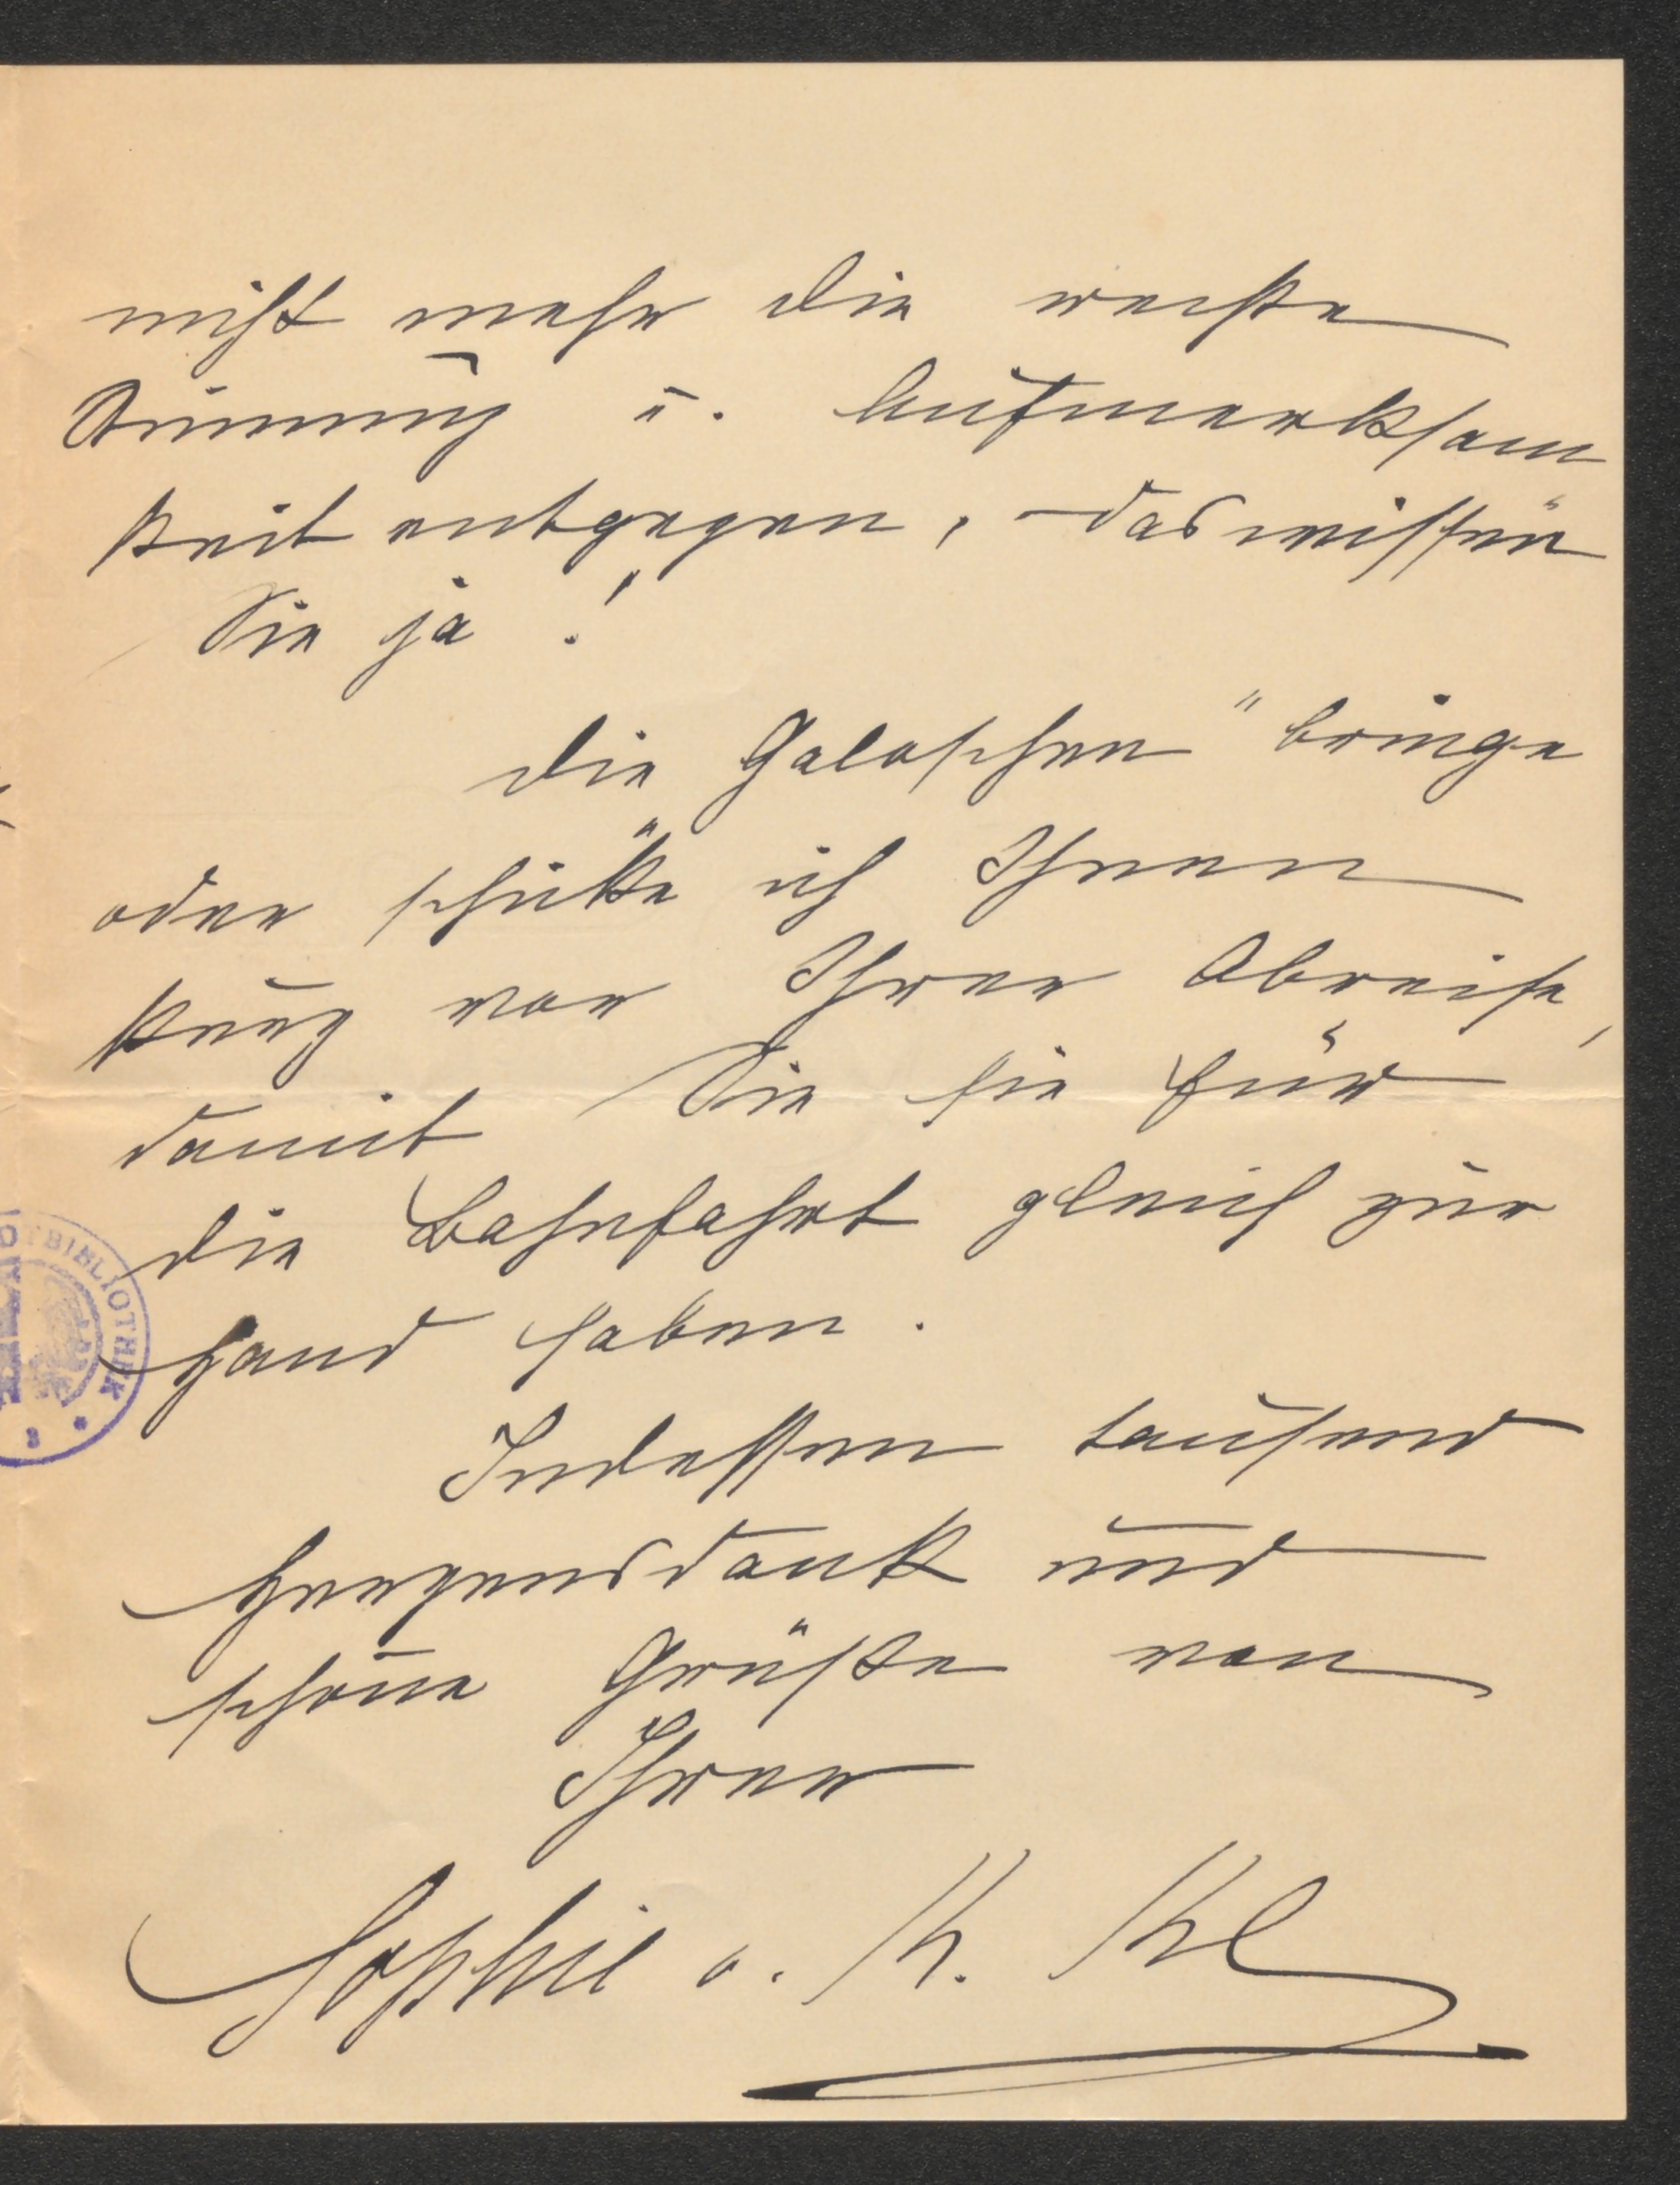 nicht mehr die rechte
Stimmung u. Aufmerksam
keit entgegen, – das wissen
Sie ja!
Die Galoschen" bringe
oder schicke ich Ihnen
knap vor Ihrer Abreise,
damit Sie sie für
die Bahnfahrt gleich zur
Hand haben.
Indessen tausend
Herzensdank und
schöne Grüße von
Ihrer
Sophie v. Kh. Khl
BIBLIOTHEK